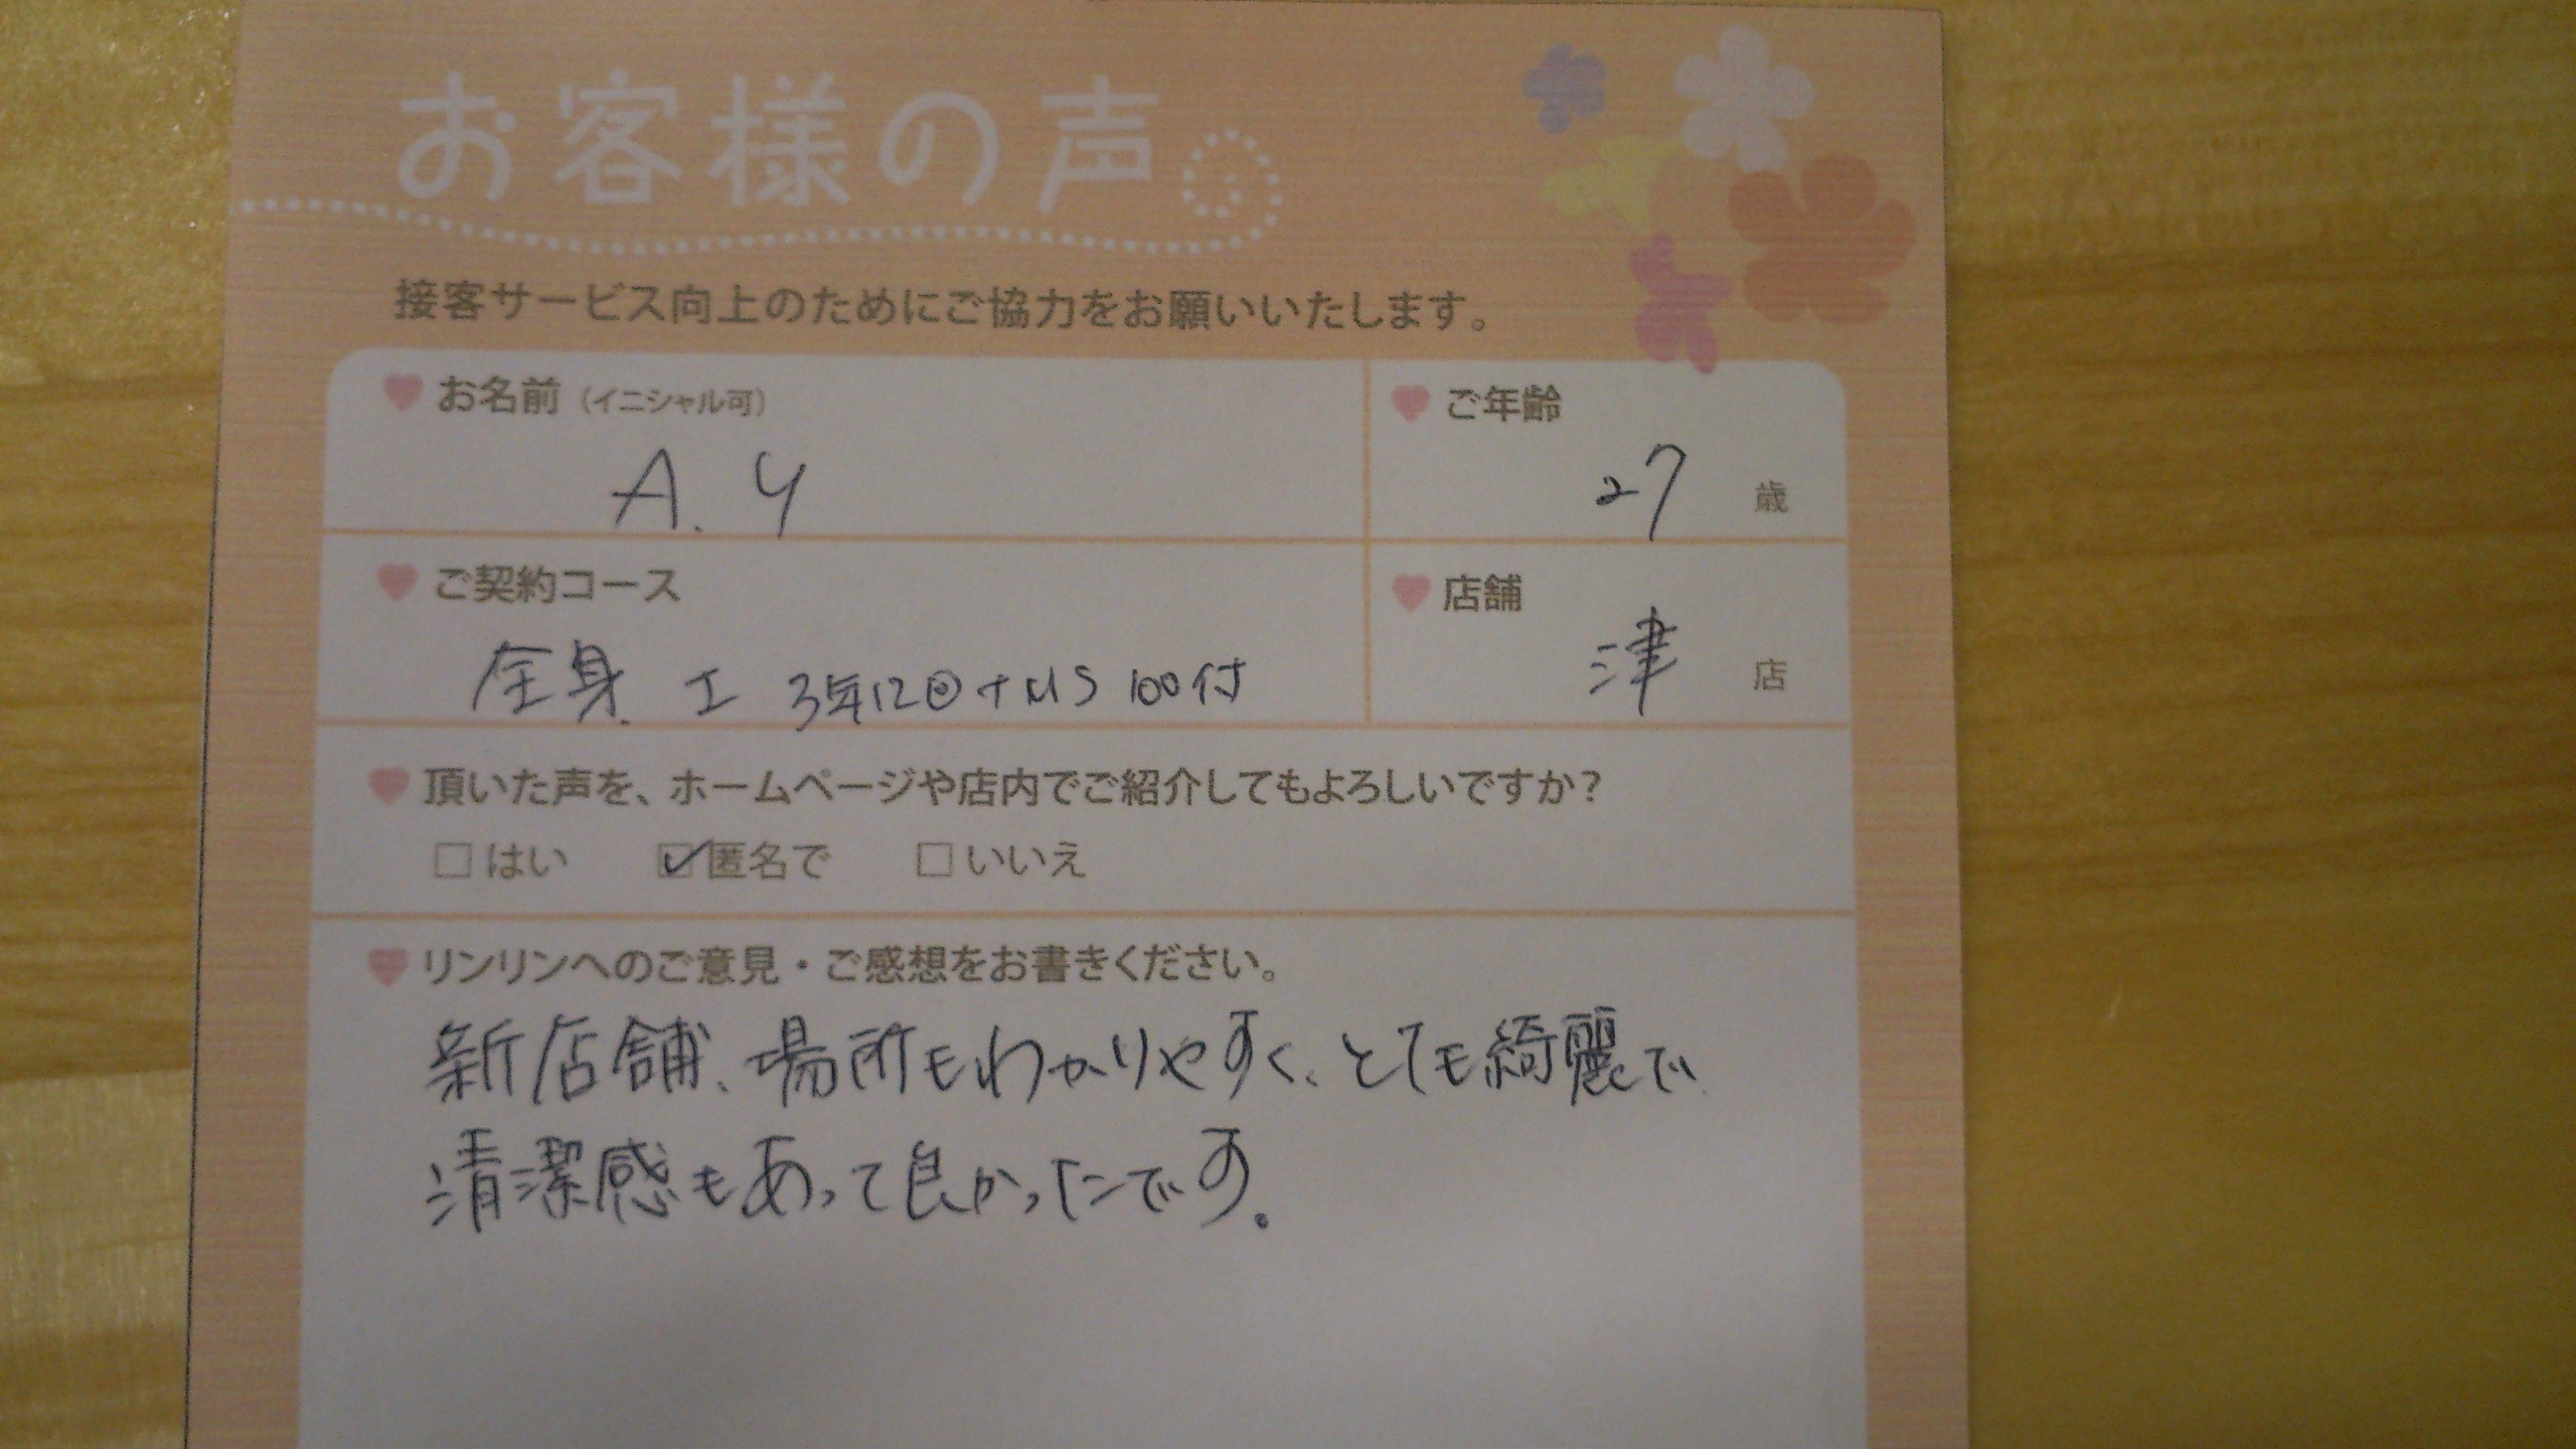 お客様の声
接客サービス向上のためにご協力をお願いいたします。
お名前（イニシャル可）
A. Y
ご年齢
27 歳
ご契約コース
全身 I 3年12回+MS 100付
店舗
津 店
頂いた声を、ホームページや店内でご紹介してもよろしいですか？
はい 匿名で いいえ
リンリンへのご意見・ご感想をお書きください。
新店舗、場所もわかりやすく、とても綺麗で
清潔感もあって良かったです。